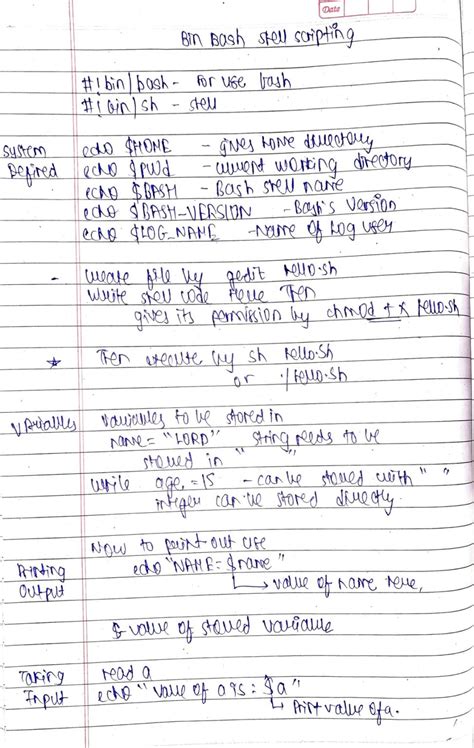 Date
Bin Bash shell scripting
#!bin/bash - for use bash
#!bin/sh - shell
System Defined
echo $HOME - gives home directory
echo $PWd - current working directory
echo $BASH - Bash shell name
echo $BASH-VERSION - Bash's Version
echo $LOG_NAME - Name of Log user
- create file by gedit hello.sh
Write shell code there Then
gives its permission by chmod +x hello.sh
* Then execute by sh hello.sh
or ./hello.sh
Variables
variables to be stored in
name = "LORD" string needs to be
stored in " "
while age = 15 - can be stored with " "
integer can be stored directly.
Now to print out use
Printing Output
echo "NAME = $name"
value of name here,
$ value of stored variable
Taking Input
read a
echo "value of a is : $a"
Print value of a.